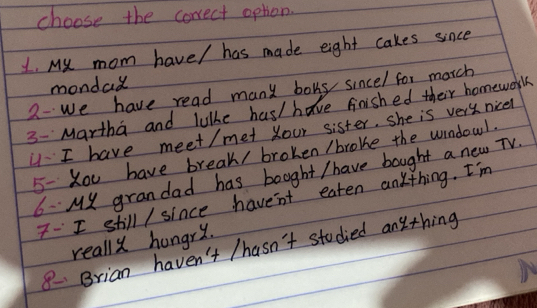 choose the correct option.
1. My mom have/ has made eight cakes since
monday
2-. We have read many boks/ since/ for march
3-. Martha and luke has/ have finished their homework
4-. I have meet/met your sister. she is very nice!
5-. You have break/ broken /broke the window!.
6-. My grandad has bought/have bought a new TV.
7-. I still / since haven't eaten anything. I'm
really hungry.
8-. Brian haven't /hasn't studied anything